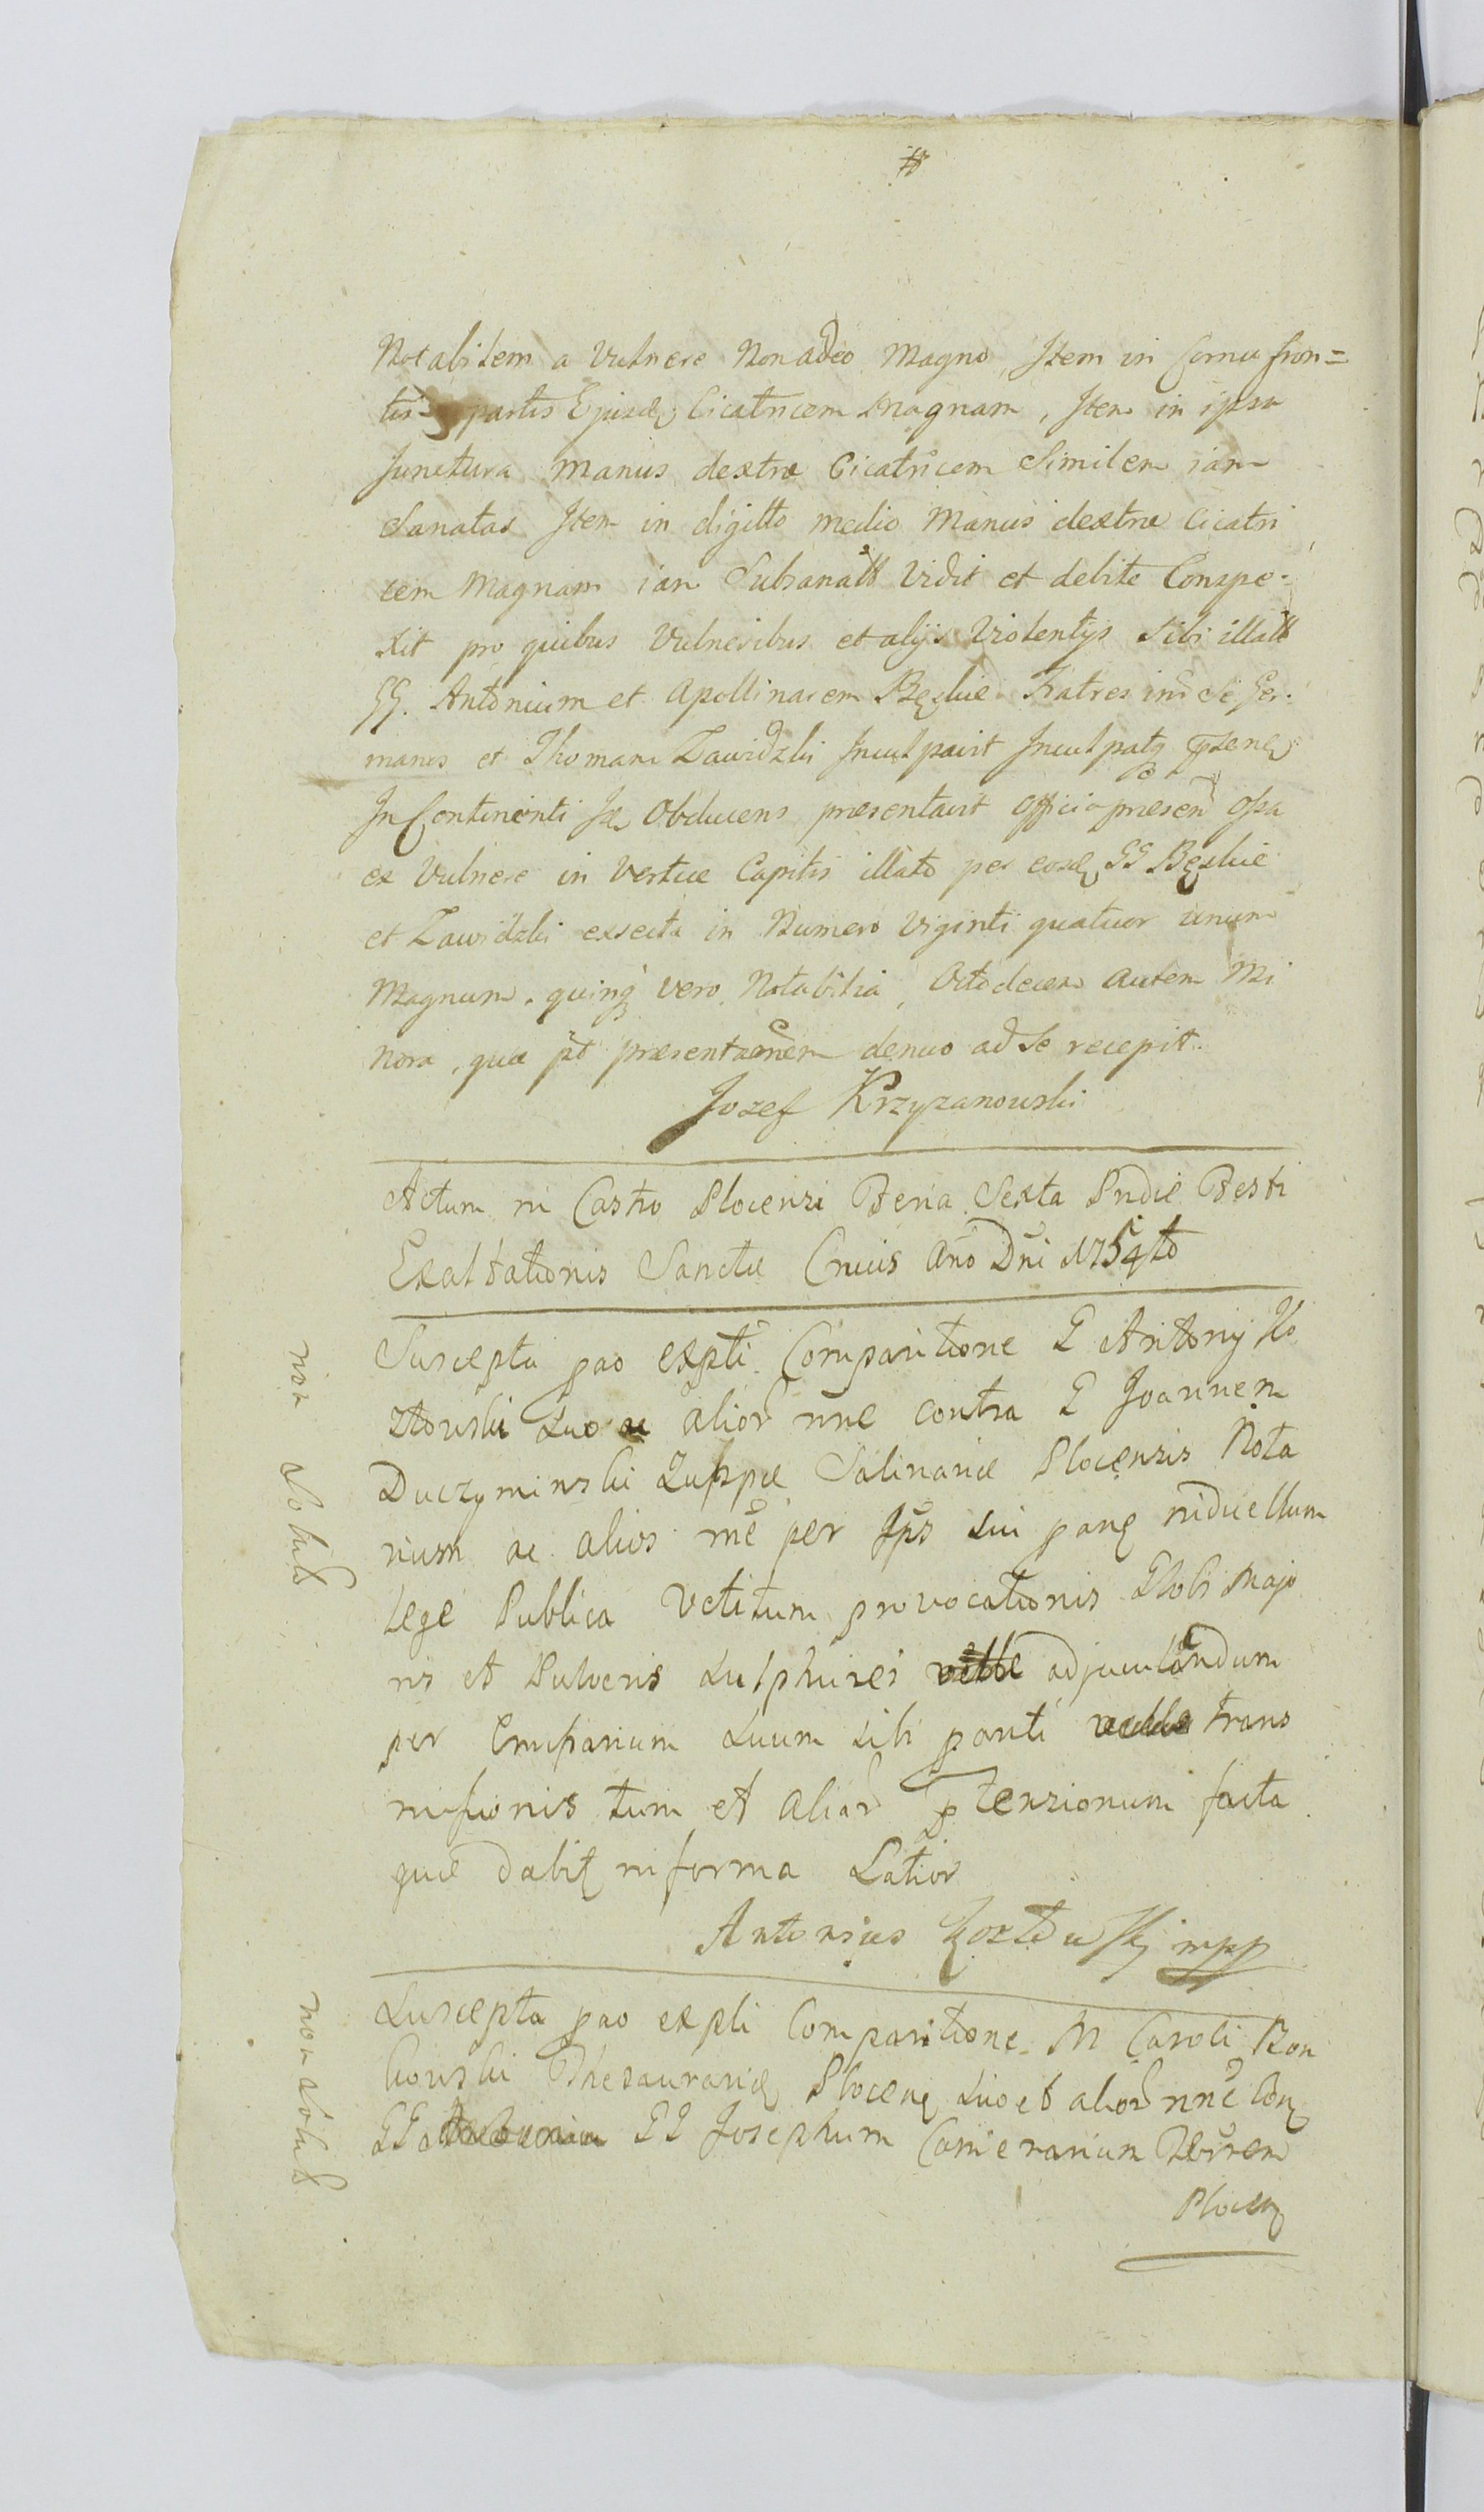 Notabilem a Vulnere Non adeo Magno, Item in Cornu fron=
tis partis Ejusdę Cicatricem Magnam, Item in ipsa
Junctura Manus dextræ Cicatricem Similem iam
Sanatas Item in digitto medio Manus dextræ Cicatri
cem Magnam iam Subsanatt Vidit et debite Conspe-
xit pro quibus Vulneribus et alijs Violentijs Sibi illatt
GG. Antonium et Apollinarem Fratres inr Se Ger-
manos et Thomam Zawidzki Inculpavit Inculpatq
In Continenti Obducens præsentavit Officio præsen ossa
ex Vulnere in Vertice Capitis illato per eosdę GG
et Zawidzki exsecta in Numero Viginti quatuor unum
Magnum, quinq vero Notabilia, Octodecem autem Mi
nora, quæ pt præsentaonem denuo ad Se recepit.
Jozef Krzyzanowski
Actum in Castro Plocensi Feria Sexta Pridie Festi
Exaltationis Sanctæ Crucis Ano Dni 1754to
Suscepta pao expti Comparitione G Antonij Ko
ztowski Suo ac alior nne contra G Joannem
Duczyminski Zuppæ Salinariæ Plocensis Nota
rium ac alios me per Ips sui in duellum
Lege Publica Vetitum provocationis Globi Majo
ris et Pulveris Sulphurei adjaculandum
per Emissarium Suum Sibi panti trans
missionis tum et aliar ptensionum facta
quæ dabitę in forma Latior
Antonius Kozłowskj mpp
Suscepta pao expti Comparitione M Caroli Bon
kowski Thesaurarię Plocenę Suo et alior nne Conę
GG GG Josephum Camerarium Terrem
Plocenę
non solutt
non solutt